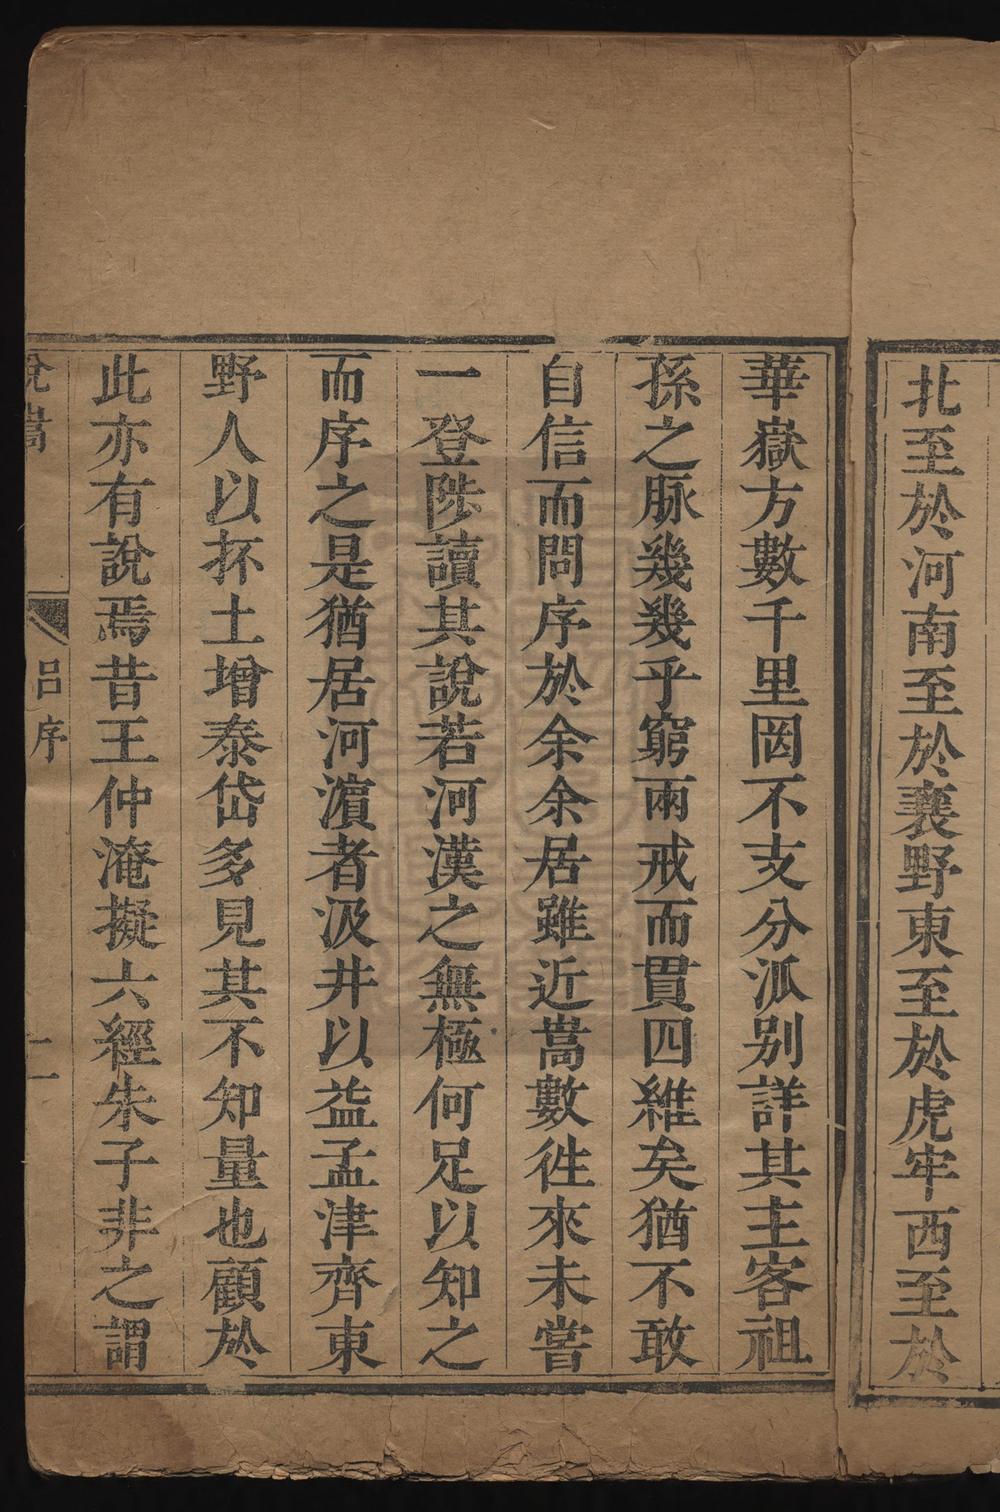 北至於河南至於襄野東至於虎牢西至於
華嶽方數千里罔不支分泒別詳其主客祖
孫之脉幾幾乎窮兩戒而貫四維矣猶不敢
自信而問序於余余居雖近嵩數徃來未嘗
一登陟讀其說若河漢之無極何足以知之
而序之是猶居河濵者汲井以益孟津齊東
野人以抔土增泰岱多見其不知量也顧於
此亦有說焉昔王仲淹擬六經朱子非之謂
說嵩
呂序
二